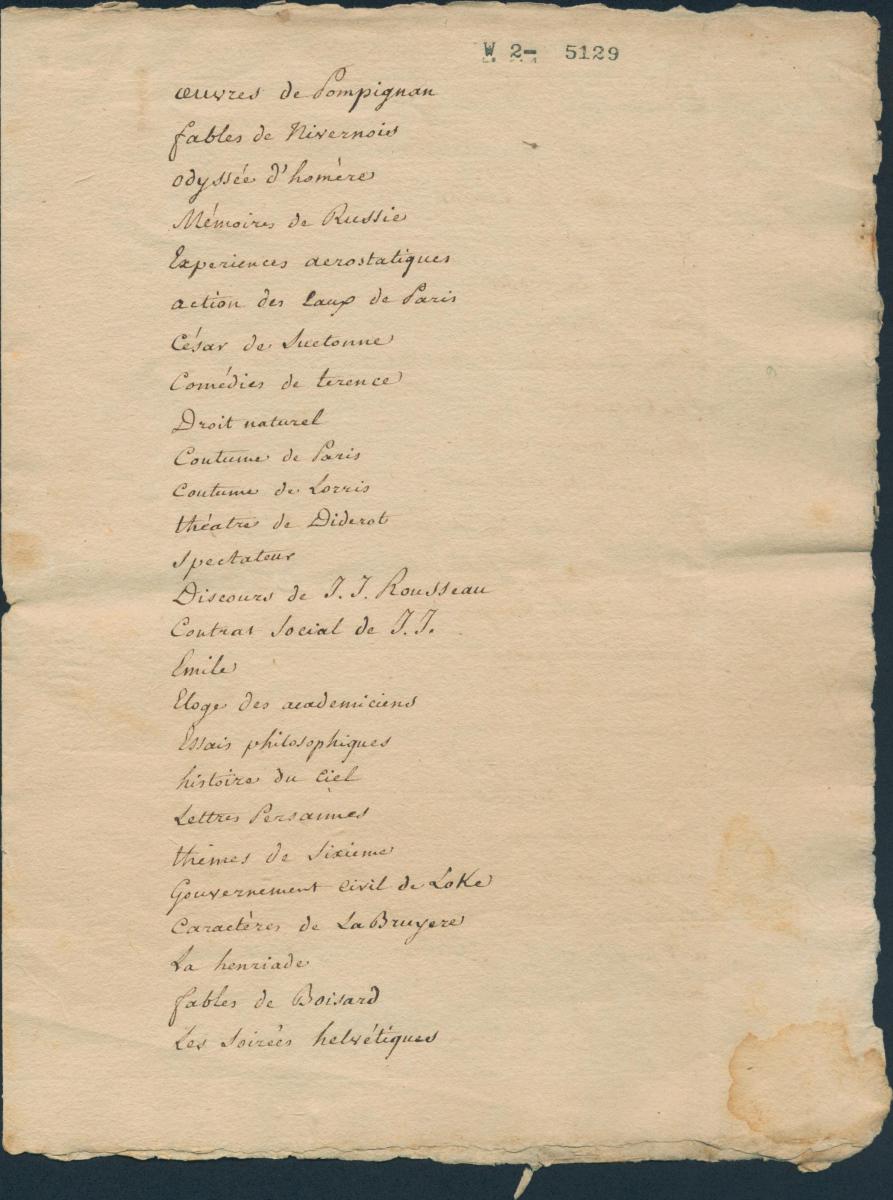 W 2- 5129
œuvres de Pompignan
fables de Nivernois
odyssée d'homère
Mémoires de Russie
Experiences aerostatiques
action des Eaux de Paris
César de Suetonne
Comédies de terence
Droit naturel
Coutume de Paris
coutume de Lorris
théatre de Diderot
Spectateur
Discours de J. J. Rousseau
Contrat Social de J. J.
Emile
Eloge des academiciens
Essais philosophiques
histoire du Ciel
Lettres Persannes
thèmes de Sixieme
Gouvernement civil de LoKe
Caractères de La Bruyere
La henriade
fables de Boisard
Les Soirées helvétiques